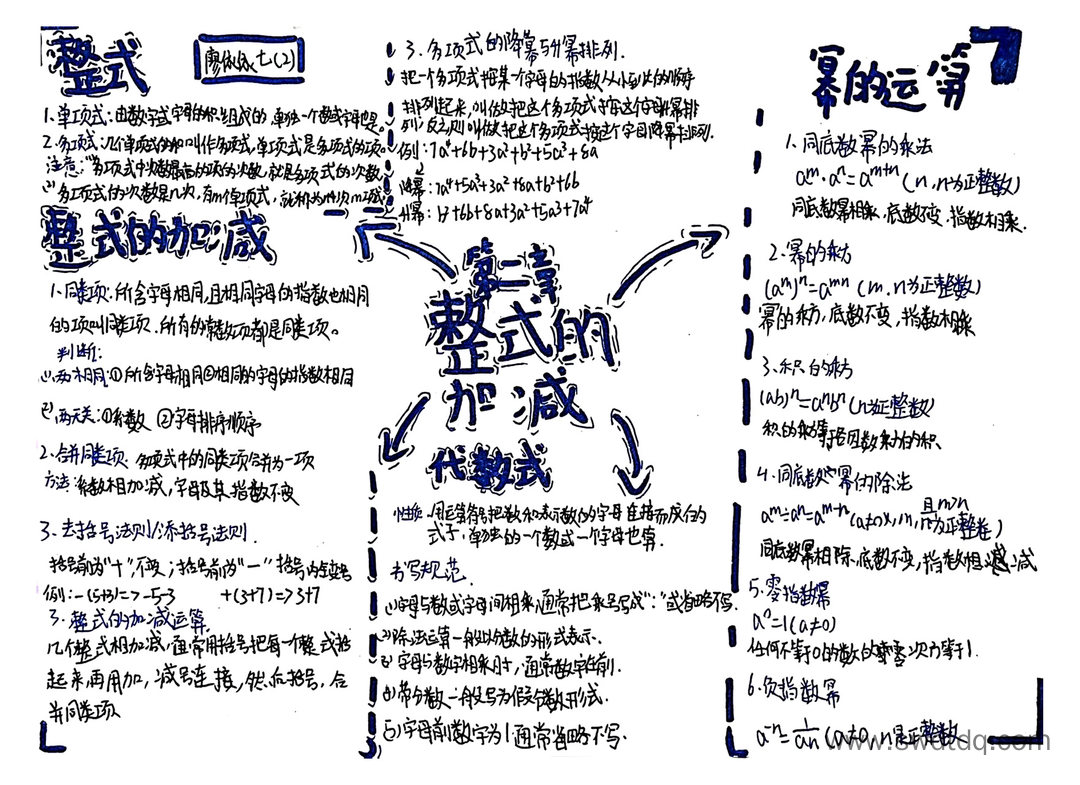 整式
廖依依七(2)
1、单项式：由数字或字母的积组成的,单独一个数或字母也是。
2、多项式：几个单项式的和叫作多项式,单项式是多项式的项。
注意：⑴多项式中次数最高的项的次数,就是多项式的次数
⑵多项式的次数是n次,有m个单项式,就称为n次m项式
整式的加减
1、同类项：所含字母相同,且相同字母的指数也相同
的项叫同类项、所有的常数项都是同类项。
判断：
⑴、两相同：①所含字母相同②相同的字母的指数相同
⑵、两无关：①系数 ②字母排序顺序
2、合并同类项：多项式中的同类项合并为一项
方法：系数相加减,字母及其指数不变
3、去括号法则/添括号法则.
括号前为"+",不变；括号前为"-",括号内变号
例：-(5+3)=>-5-3 +(3+7)=>3+7
3、整式的加减运算
几个整式相加减,通常用括号把每一个整式括
起来再用加,减号连接,然后括号,合
并同类项
3、多项式的降幂与升幂排列.
把一个多项式按某一个字母的指数从小到大的顺序
排列起来,叫做把这个多项式按这个字母升幂排
列,反之则叫做把这个多项式按这个字母降幂排列.
例：7a⁴+6b+3a²+b²+5a³+8a
降幂：7a⁴+5a³+3a²+8a+b²+6b
升幂：b²+6b+8a+3a²+5a3+7a⁴
第二章
整式的
加减
代数式
性质：用运算符号把数和表示数的字母连接而成的
式子,单独的一个数或一个字母也算.
书写规范.
⑴字母与数或字母间相乘,通常把乘号写成"·"或省略不写.
⑵除法运算一般以分数的形式表示.
⑶字母与数字相乘时,通常数字在前.
⑷带分数一般写为假分数形式.
⑸字母前数字为1通常省略不写.
幂的运算
1、同底数幂的乘法
aᵐ·aⁿ=aᵐ⁺ⁿ(n,n为正整数)
同底数幂相乘,底数不变,指数相乘.
2、幂的乘方
(aᵐ)ⁿ=aᵐⁿ(m,n为正整数)
幂的乘方,底数不变,指数相乘
3、积的乘方
(ab)ⁿ=aⁿbⁿ(n为正整数)
积的乘方等于各因数乘方的积
4、同底数幂的除法
aᵐ÷aⁿ=aᵐ⁻ⁿ(a≠0,m,n为正整数,且m>n)
同底数幂相除,底数不变,指数相减
5、零指数幂
a⁰=1(a≠0)
任何不等于0的数的零次方等于1.
6、负指数幂
a⁻ⁿ=1/aⁿ(a≠0,n是正整数
www.swdtdq.com